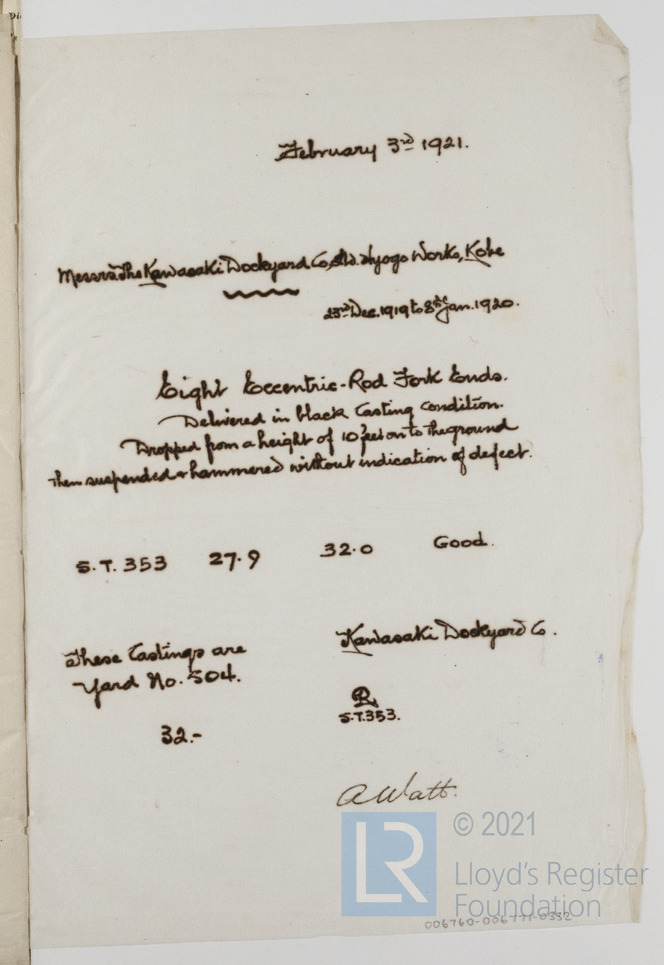 February 3rd 1921.
Messrs The Kawasaki Dockyard Co. Ltd. Hyogo Works, Kobe
23rd Dec. 1919 to 8th Jan. 1920.
Eight Eccentric-Rod Fork Ends.
Delivered in black Casting Condition.
Dropped from a height of 10 feet on to the ground
Then suspended & hammered without indication of defect.
S.T. 353 27.9 32.0 Good.
These Castings are
Yard No. 504.
32.-
Kawasaki Dockyard Co.
S.T. 353.
A Watt.
LR
© 2021
Lloyd's Register
Foundation
006760-006771-0332